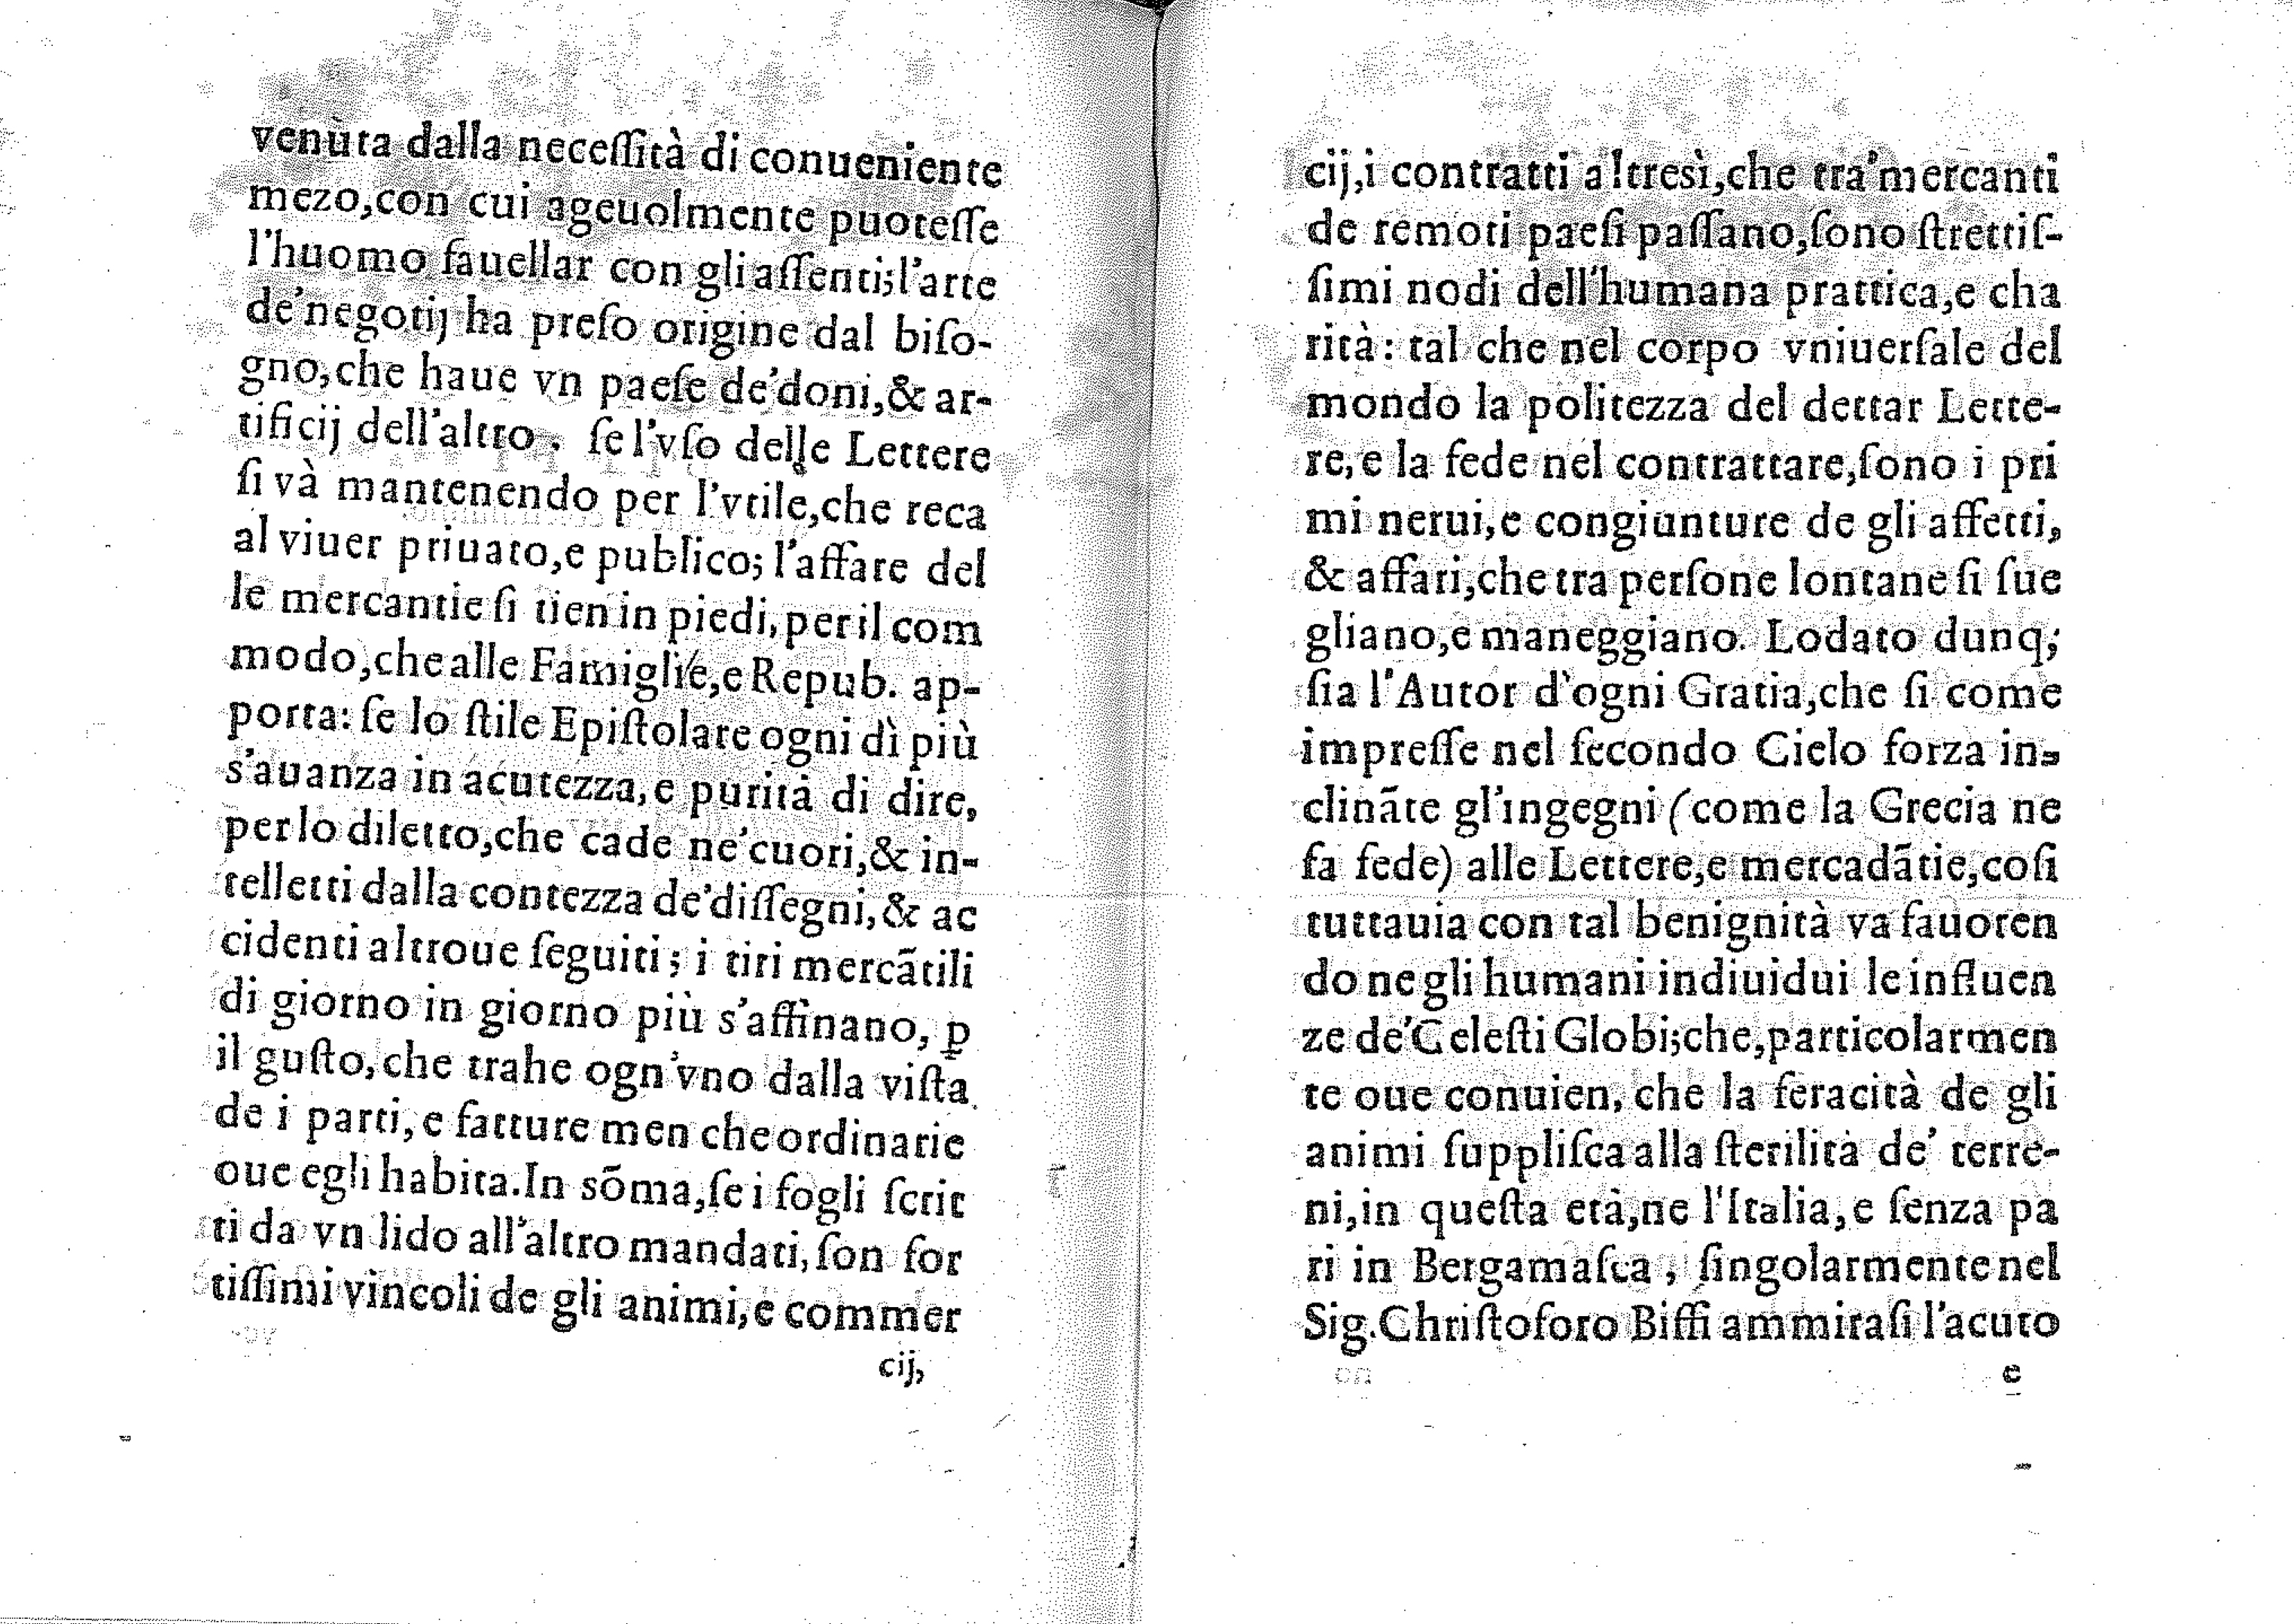 venùta dalla neceſſità di conueniente
mezo,con cui ageuolmente puoteſſe
l'huomo fauellar con gli aſſenti;l'arte
de'negotij ha preſo origine dal biſo-
gno,che haue vn paeſe de'doni,& ar-
tificij dell'altro. ſe l'vſo delle Lettere
ſi và mantenendo per l'vtile,che reca
al viuer priuato,e publico; l'affare del
le mercantie ſi tien in piedi,per il com
modo,che alle Famiglie,e Repub. ap-
porta: ſe lo ſtile Epiſtolare ogni dì più
s'auanza in acutezza,e purità di dire,
per lo diletto,che cade ne'cuori,& in-
telletti dalla contezza de'diſſegni,& ac
cidenti altroue ſeguiti; i tiri mercãtili
di giorno in giorno più s'affinano, ꝑ
il guſto,che trahe ogn'vno dalla viſta
de i parti,e fatture men che ordinarie
oue egli habita.In sõma,ſe i fogli ſcrit
ti da vn lido all'altro mandati,ſon for
tiſſimi vincoli de gli animi,e commer
cij,
cij,i contratti altresì,che tra'mercanti
de remoti paeſi paſſano,ſono ſtrettiſ-
ſimi nodi dell'humana prattica,e cha
rità: tal che nel corpo vniuerſale del
mondo la politezza del dettar Lette-
re,e la fede nel contrattare,ſono i pri
mi nerui,e congiunture de gli affetti,
& affari,che tra perſone lontane ſi ſue
gliano,e maneggiano. Lodato dunq;
ſia l'Autor d'ogni Gratia,che ſi come
impreſſe nel ſecondo Cielo forza in-
clinãte gl'ingegni (come la Grecia ne
fa fede) alle Lettere,e mercadãtie,coſi
tuttauia con tal benignità va fauoren
do ne gli humani indiuidui le influen
ze de'Celeſti Globi;che,particolarmen
te oue conuien, che la feracità de gli
animi ſuppliſca alla ſterilità de' terre-
ni,in queſta età,ne l'Italia,e ſenza pa
ri in Bergamaſca, ſingolarmente nel
Sig.Chriſtoforo Biffi ammiraſi l'acuto
e